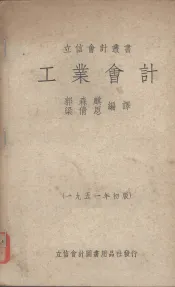 立信會計叢書
工業會計
郭森麟
梁倩恩
編譯
(一九五一年初版)
立信會計圖書用品社發行